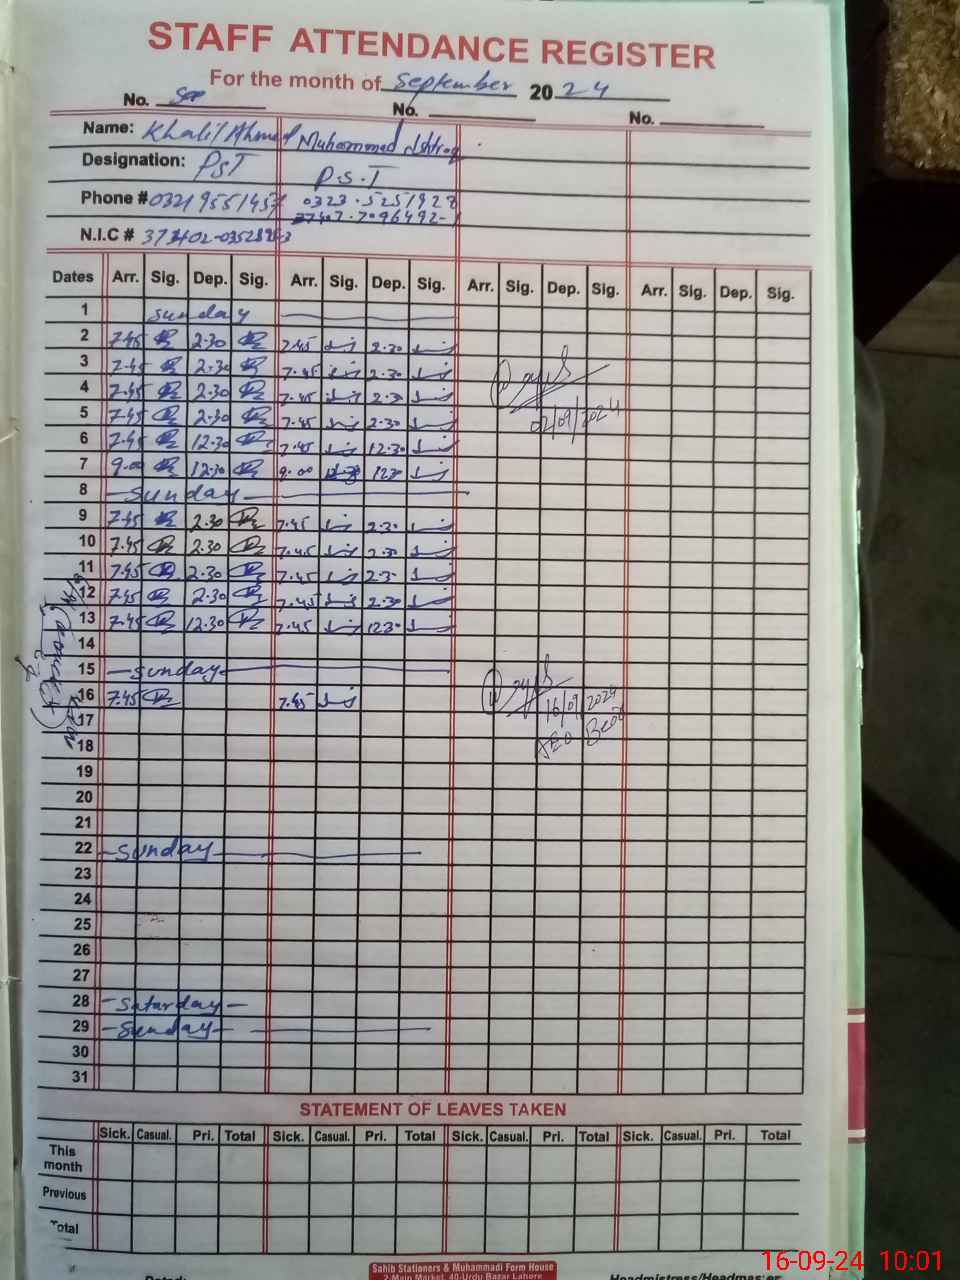 STAFF ATTENDANCE REGISTER
For the month of September 2024
No. No. No.
Name: Khalil Ahmed Muhammad Ishtiaq
Designation: PST P.S.T
Phone # 03219551457 0323.5251928
37407.7096492-1
N.I.C #
Dates Arr. Sig. Dep. Sig. Arr. Sig. Dep. Sig. Arr. Sig. Dep. Sig. Arr. Sig. Dep. Sig.
1 Sunday
2 7.45 2.30 7.45 2.30
3 7.45 2.30 7.45 2.30
4 7.45 2.30 7.45 2.30
5 7.45 2.30 7.45 2.30
02/09/2024
6 7.45 12.30 7.45 12.30
7 9.00 12.30 9.00 1230
8 Sunday
9 7.45 2.30 7.45 2.30
10 7.45 2.30 7.45 2.30
11 7.45 2.30 7.45 2.30
12 7.45 2.30 7.45 2.30
13 7.45 12.30 7.45 1230
14
15 Sunday
16 7.45 7.45
16/09/2024
17
18
19
20
21
22 Sunday
23
24
25
26
27
28 Saturday
29 Sunday
30
31
STATEMENT OF LEAVES TAKEN
Sick. Casual. Pri. Total Sick. Casual. Pri. Total Sick. Casual. Pri. Total Sick. Casual. Pri. Total
This month
Previous
Total
Sahib Stationers & Muhammadi Form House
2-Main Market, 40-Urdu Bazar Lahore
Dated: Headmistress/Headmaster
16-09-24 10:01